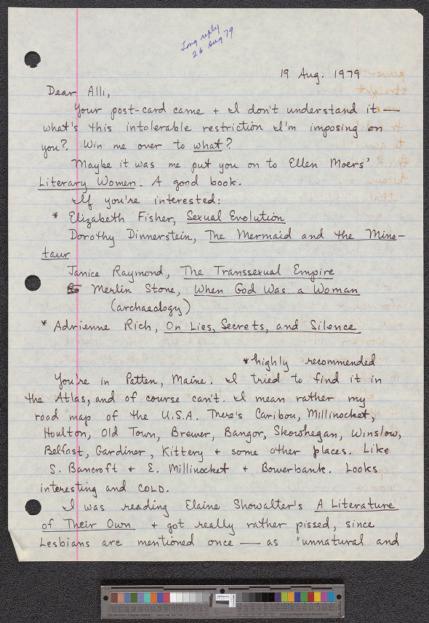 Long reply
26 Aug 79
19 Aug. 1979
Dear Alli,
Your post-card came + I don't understand it —
what's this intolerable restriction I'm imposing on
you? Win me over to what?
Maybe it was me put you on to Ellen Moers'
Literary Women. A good book.
If you're interested:
* Elizabeth Fisher, Sexual Evolution
Dorothy Dinnerstein, The Mermaid and the Mine-
taur
Janice Raymond, The Transsexual Empire
Merlin Stone, When God Was a Woman
(archaeology)
* Adrienne Rich, On Lies, Secrets, and Silence
* highly recommended
You're in Patten, Maine. I tried to find it in
the Atlas, and of course can't. I mean rather my
road map of the U.S.A. There's Caribou, Millinocket,
Houlton, Old Town, Brewer, Bangor, Skowhegan, Winslow,
Belfast, Gardiner, Kittery + some other places. Like
S. Bancroft + E. Millinocket + Bowerbank. Looks
interesting and COLD.
I was reading Elaine Showalter's A Literature
of Their Own + got really rather pissed, since
Lesbians are mentioned once — as "unnatural and